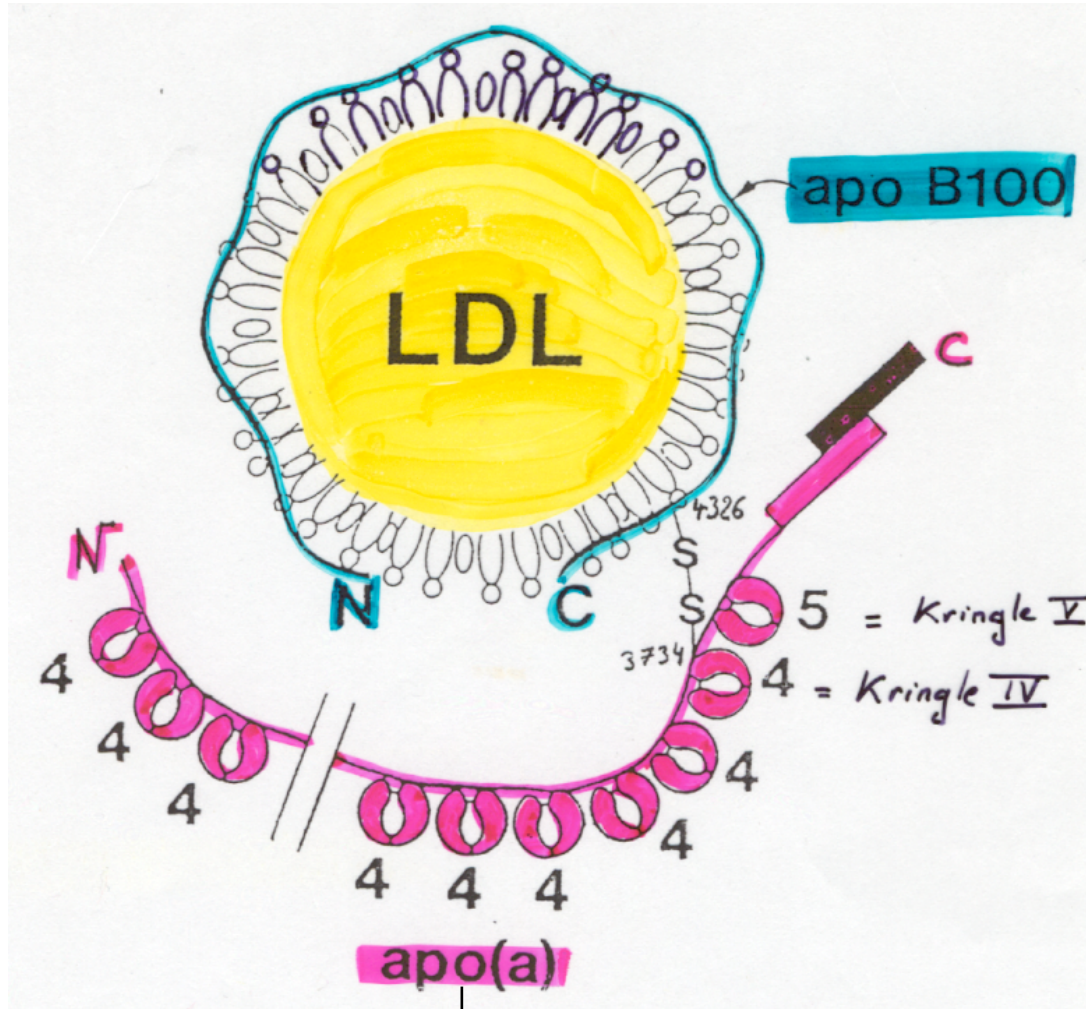 apo B100
LDL
C
4326
S
N
N
C
S
5 = Kringle V
3734
4 = Kringle IV
4
4
4
4
4
4
4
4
apo(a)